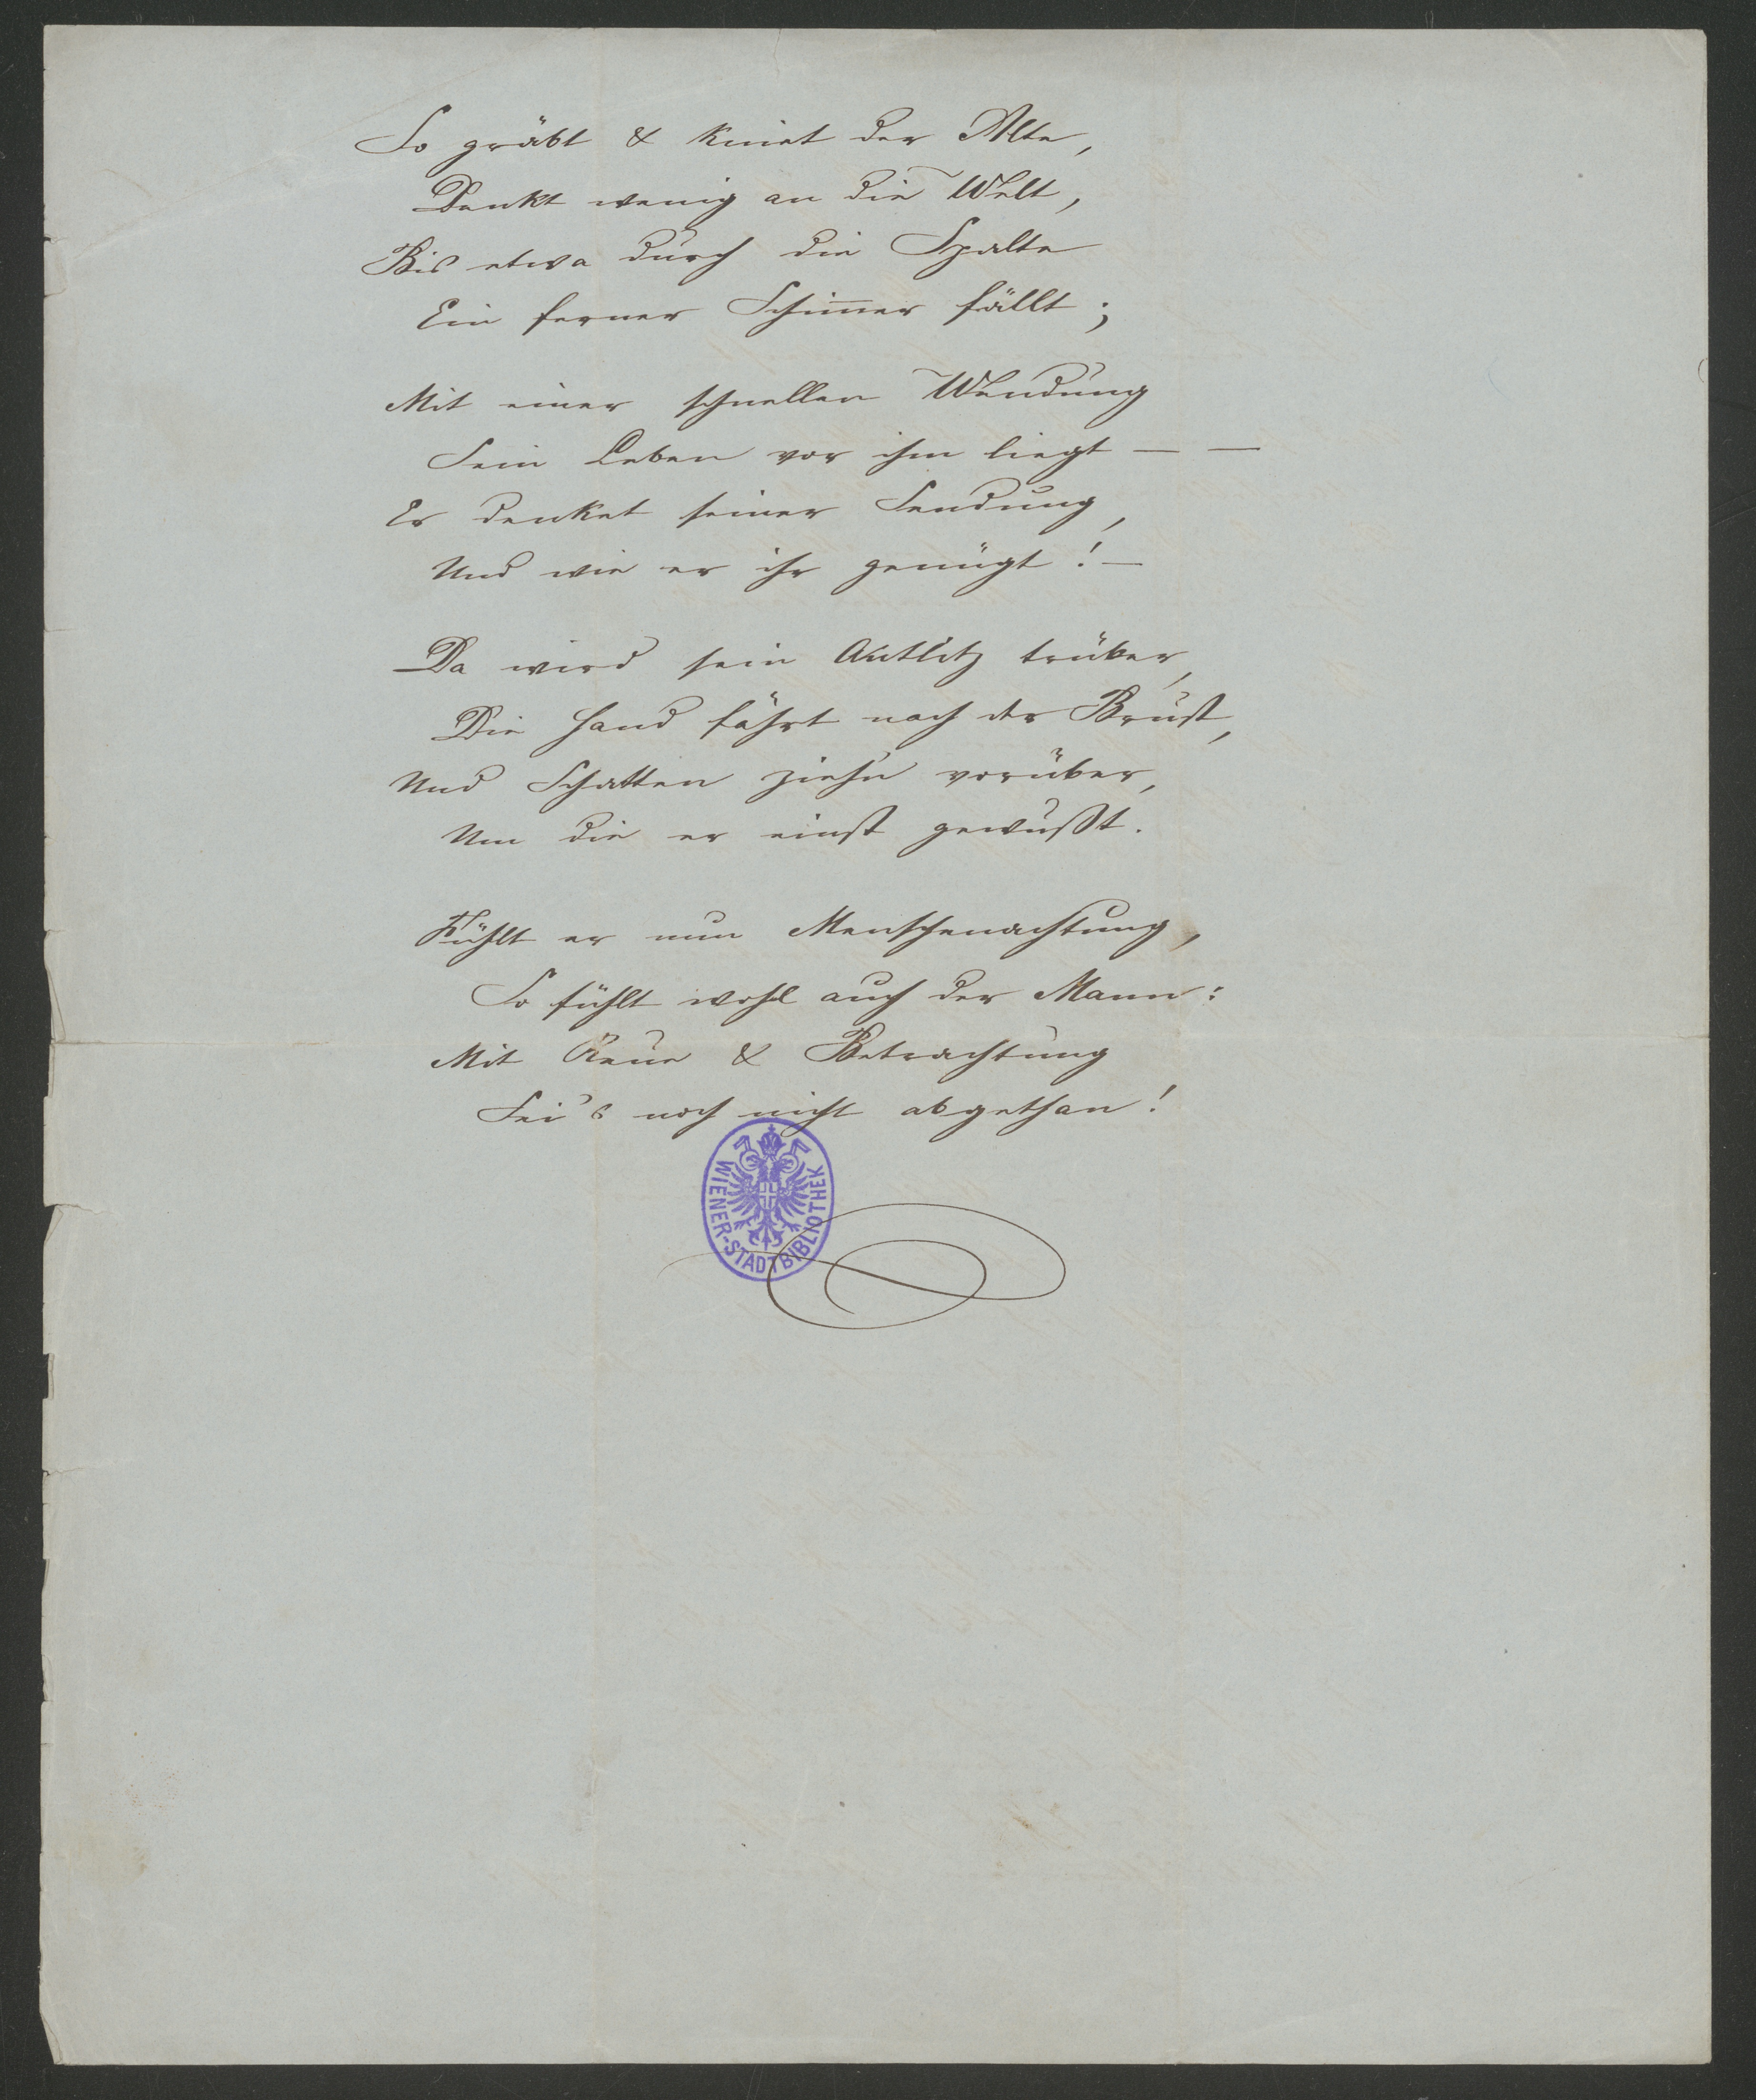 So gräbt & kniet der Alte,
Denkt wenig an die Welt,
Bis etwa durch die Spalte
Ein ferner Schim̅er fällt;
Mit einer schnellen Wendung
Sein Leben vor ihm liegt — —
Er denket seiner Sendung,
Und wie er ihr genügt! —
Da wird sein Antlitz trüber,
Die Hand fährt nach der Brust,
Und Schatten ziehn vorüber,
Um die er einst gewußt.
Fühlt er nun Menschenachtung,
So fühlt wohl auch der Mann:
Mit Reue & Betrachtung
Sei's noch nicht abgethan!
WIENER-STADTBIBLIOTHEK